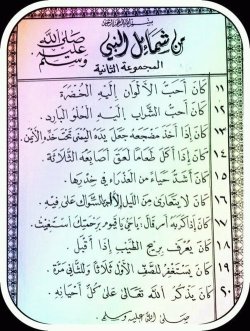 بسم الله الرحمن الرحيم
من شمائل النبي صلى الله عليه وسلم
المجموعة الثانية
١١ كَانَ أَحَبُّ الأَلْوَانِ إِلَيْهِ الْخُضْرَةَ.
١٢ كَانَ أَحَبُّ الشَّرَابِ إِلَيْهِ الْحُلْوَ الْبَارِدَ.
١٣ كَانَ إِذَا أَخَذَ مَضْجَعَهُ جَعَلَ يَدَهُ الْيُمْنَى تَحْتَ خَدِّهِ الأَيْمَنِ.
١٤ كَانَ إِذَا أَكَلَ طَعَامًا لَعِقَ أَصَابِعَهُ الثَّلاَثَةَ.
١٥ كَانَ أَشَدَّ حَيَاءً مِنَ الْعَذْرَاءِ فِي خِدْرِهَا.
١٦ كَانَ لاَ يَتَعَارُّ مِنَ اللَّيْلِ إِلاَّ السِّوَاكَ عَلَى فِيهِ.
١٧ كَانَ إِذَا كَرَبَهُ أَمْرٌ قَالَ: يَا حَيُّ يَا قَيُّومُ بِرَحْمَتِكَ أَسْتَغِيثُ.
١٨ كَانَ يُعْرَفُ بِرِيحِ الطِّيبِ إِذَا أَقْبَلَ.
١٩ كَانَ يَسْتَغْفِرُ لِلصَّفِّ الأَوَّلِ ثَلاَثًا وَلِلثَّانِي مَرَّةً.
٢٠ كَانَ يَذْكُرُ اللهَ تَعَالَى عَلَى كُلِّ أَحْيَانِهِ.
صلى الله عليه وسلم.